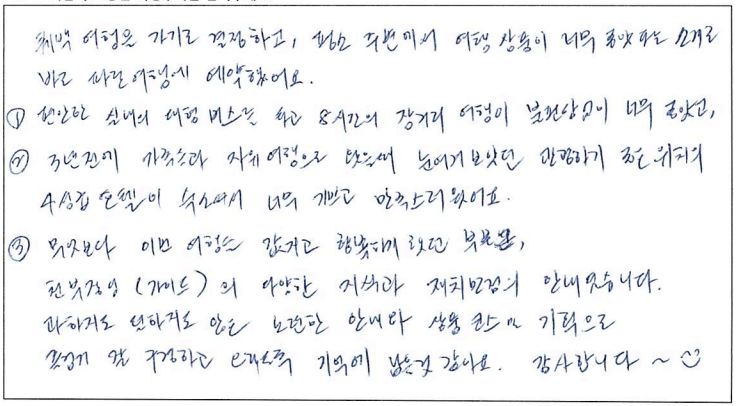 여행을 가기로 결정하고, 평소 주변에서 여행 상품이 너무 좋았다는 소개로
바로 여행에 예약했어요.
① 편안한 실내의 대형 버스를 타고 8시간의 장거리 여행이 불편함없이 너무 좋았고,
② 3년전에 가족들과 자유여행으로 왔을때 눈여겨 보았던 관광하기 좋은 위치의
4성급 호텔이 숙소여서 너무 기쁘고 만족스러웠어요.
③ 무엇보다 이번 여행을 값지고 행복하게 했던 부분은,
(가이드)의 다양한 지식과 재치만점의 안내였습니다.
과하지도 덜하지도 않은 노련한 안내와 상품 코스의 기획으로
즐겁게 잘 구경하고 오래도록 기억에 남을것 같아요. 감사합니다 ~